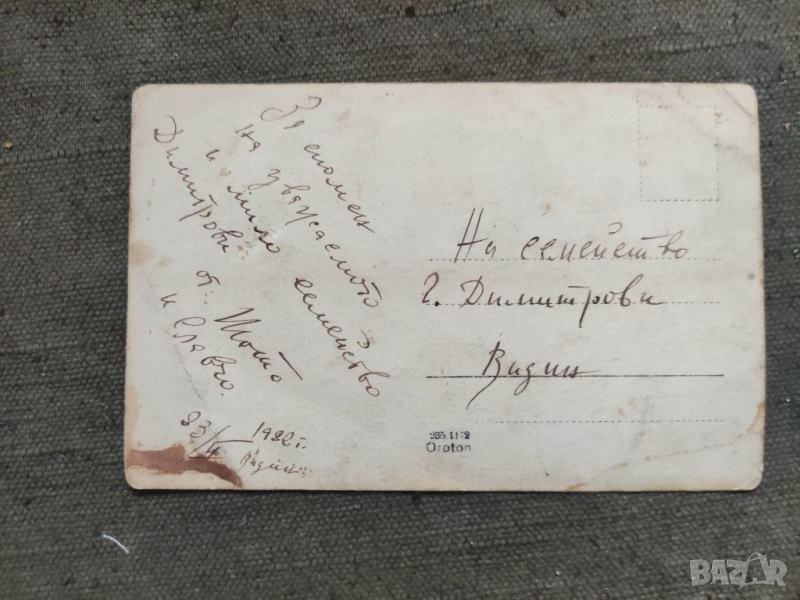 За спомен
на уважаемото
и мило семейство
Димитрови от: Тото
и Славчо.
23/V 1922 г.
Видин
На семейство
Г. Димитрови
Видин
235 1172
Oroton
BAZAR